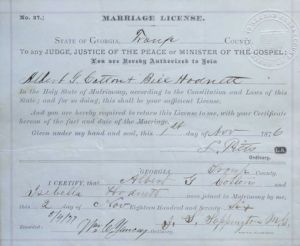 No. 37.] MARRIAGE LICENSE.
STATE OF GEORGIA, Troup COUNTY.
To any JUDGE, JUSTICE OF THE PEACE or MINISTER OF THE GOSPEL:
You are Hereby Authorized to Join
Albert G. Cotton & Bell Hodnett
In the Holy State of Matrimony, according to the Constitution and Laws of this
State; and for so doing, this shall be your sufficient License.
And you are hereby required to return this License to me, with your Certificate
hereon of the fact and date of the Marriage.
Given under my hand and seal, this 1st day of Nov 1876
Ordinary.
GEORGIA Troup County.
I CERTIFY that Albert G Cotton and
Isabella Hodnett were joined in Matrimony by me, this
2 day of Nov Eighteen Hundred and Seventy Six